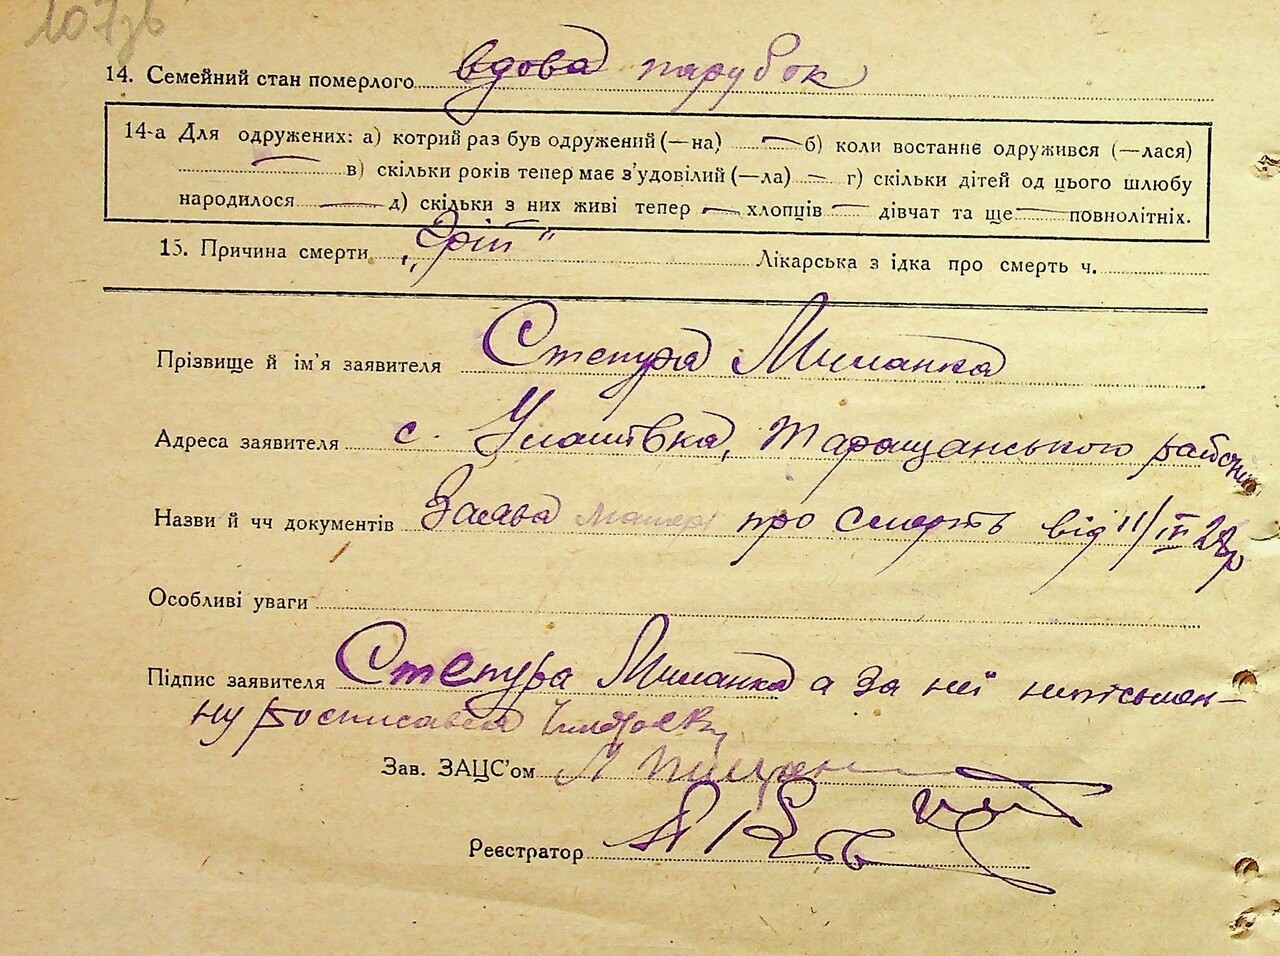 107зв
14. Семейний стан померлого вдова парубок
14-а Для одружених: а) котрий раз був одружений (—на) б) коли востаннє одружився (—лася)
в) скільки років тепер має з'удовілий (—ла) г) скільки дітей од цього шлюбу
народилося д) скільки з них живі тепер хлопців дівчат та ще повнолітніх.
15. Причина смерти „Гріп" Лікарська з ідка про смерть ч.
Прізвище й ім'я заявителя Степура Миланка
Адреса заявителя с. Улашівка, Таращанського району
Назви й чч документів Заява матері про смерть від 11/III 28р
Особливі уваги
Підпис заявителя Степура Миланка а за неї неписьмен-
ну росписався
Зав. ЗАЦС'ом
Реєстратор